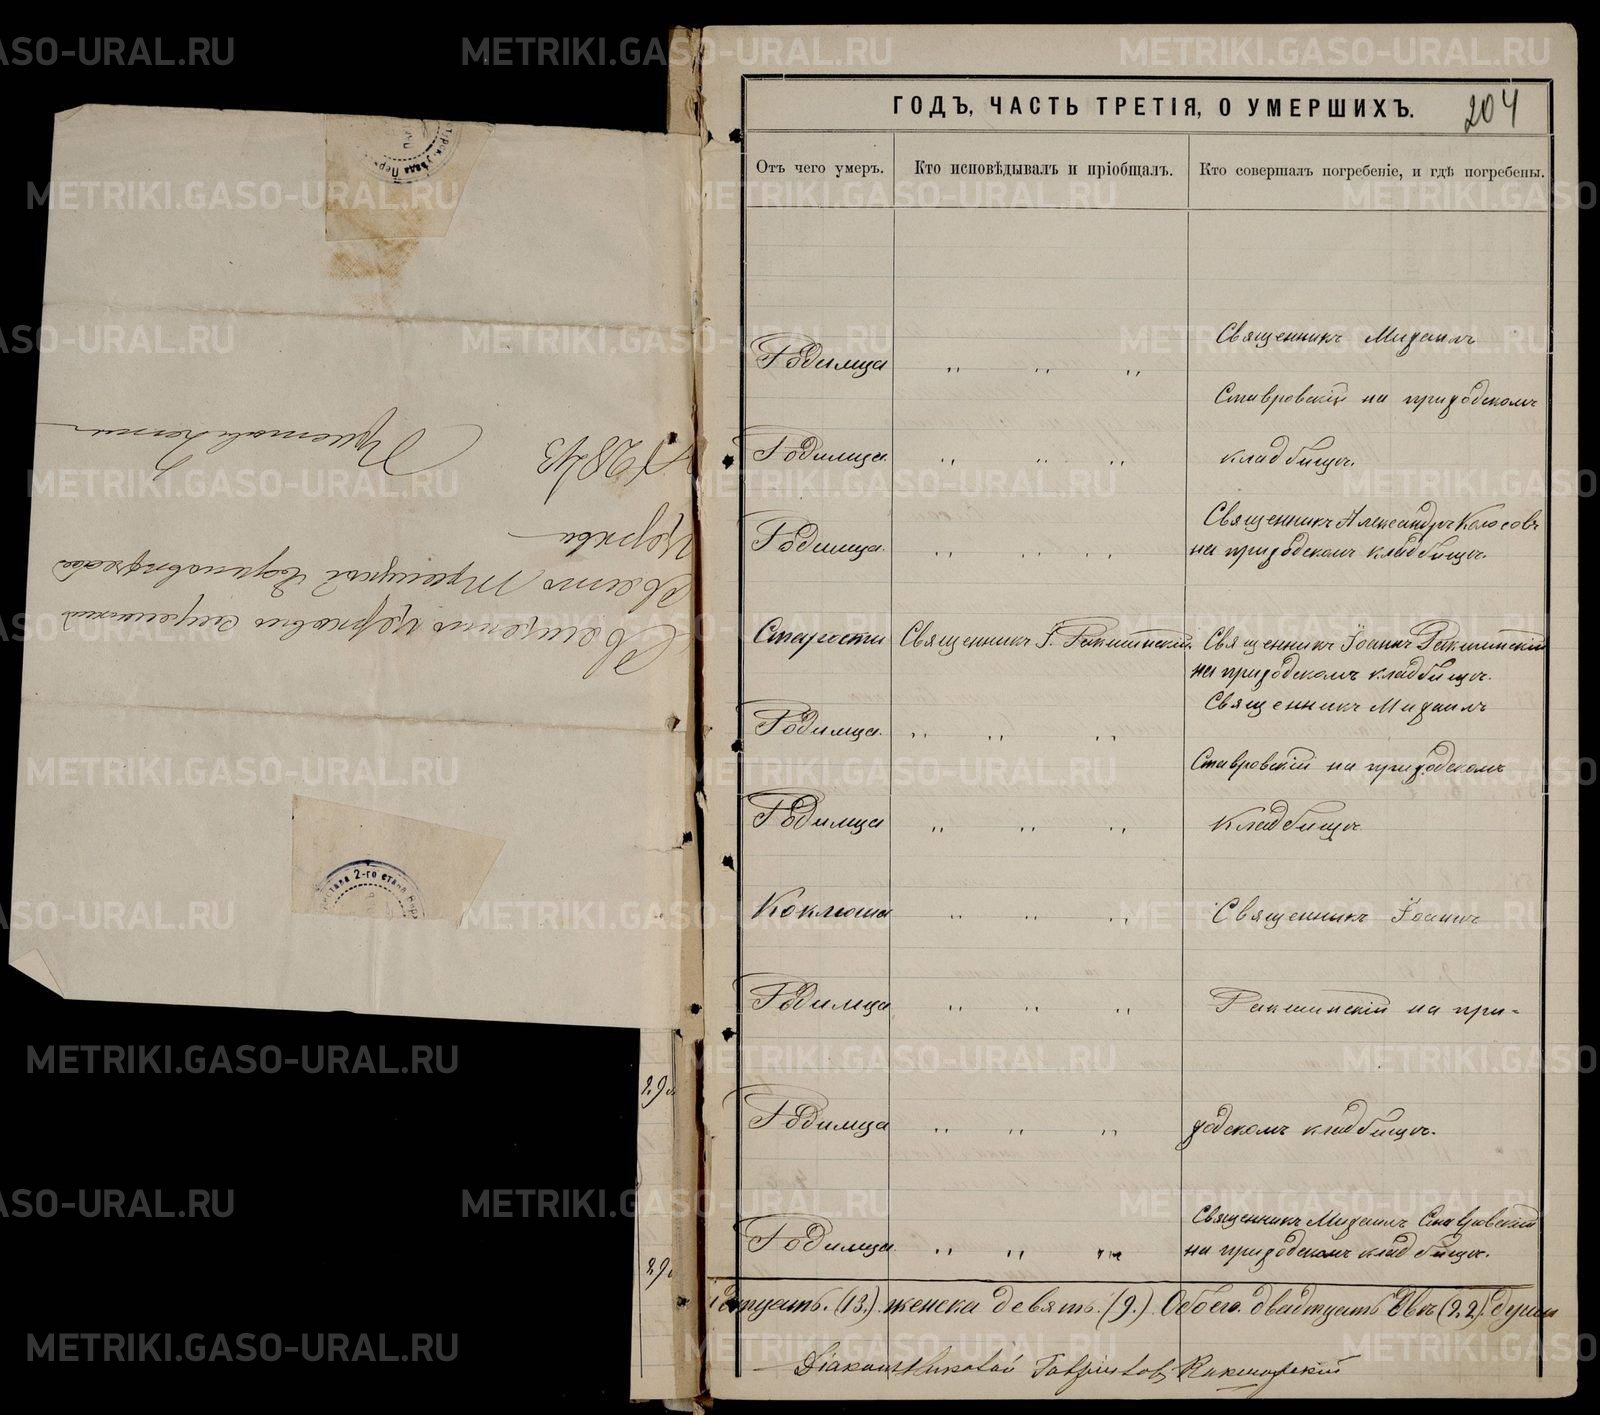 ГОДЪ, ЧАСТЬ ТРЕТІЯ, О УМЕРШИХЪ. 204
Отъ чего умеръ. Кто исповѣдывалъ и пріобщалъ. Кто совершалъ погребеніе, и гдѣ погребены.
Священникъ Михаилъ
Родимца " " "
Ставровскій на приходскомъ
Родимца. " " " кладбищѣ.
Священникъ Александръ Колосовъ
Родимца. " " " на приходскомъ кладбищѣ.
Старости Священникъ І. Священникъ Іоаннъ
на приходскомъ кладбищѣ.
Священникъ Михаилъ
Родимца. " " "
Ставровскій на приходскомъ
Родимца " " " Кладбищѣ
Коклюша " " " Священникъ Іоаннъ
Родимца " " " на при-
Родимца " " " ходскомъ кладбищѣ.
Священникъ Михаилъ Ставровскій
Родимца. " " " на приходскомъ кладбищѣ.
(13.) женска девять. (9.) Обоего двадцать двѣ (22) души
Діаконъ Николай
Священно церковно служителямъ
Свято Троицкой
Церкви
№ 2843
2-го стана
METRIKI.GASO-URAL.RU